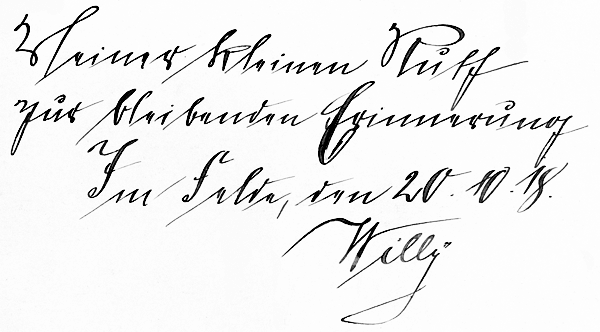 Meiner kleinen Ruth
zur bleibenden Erinnerung
Im Felde, den 20.10.18.
Willy